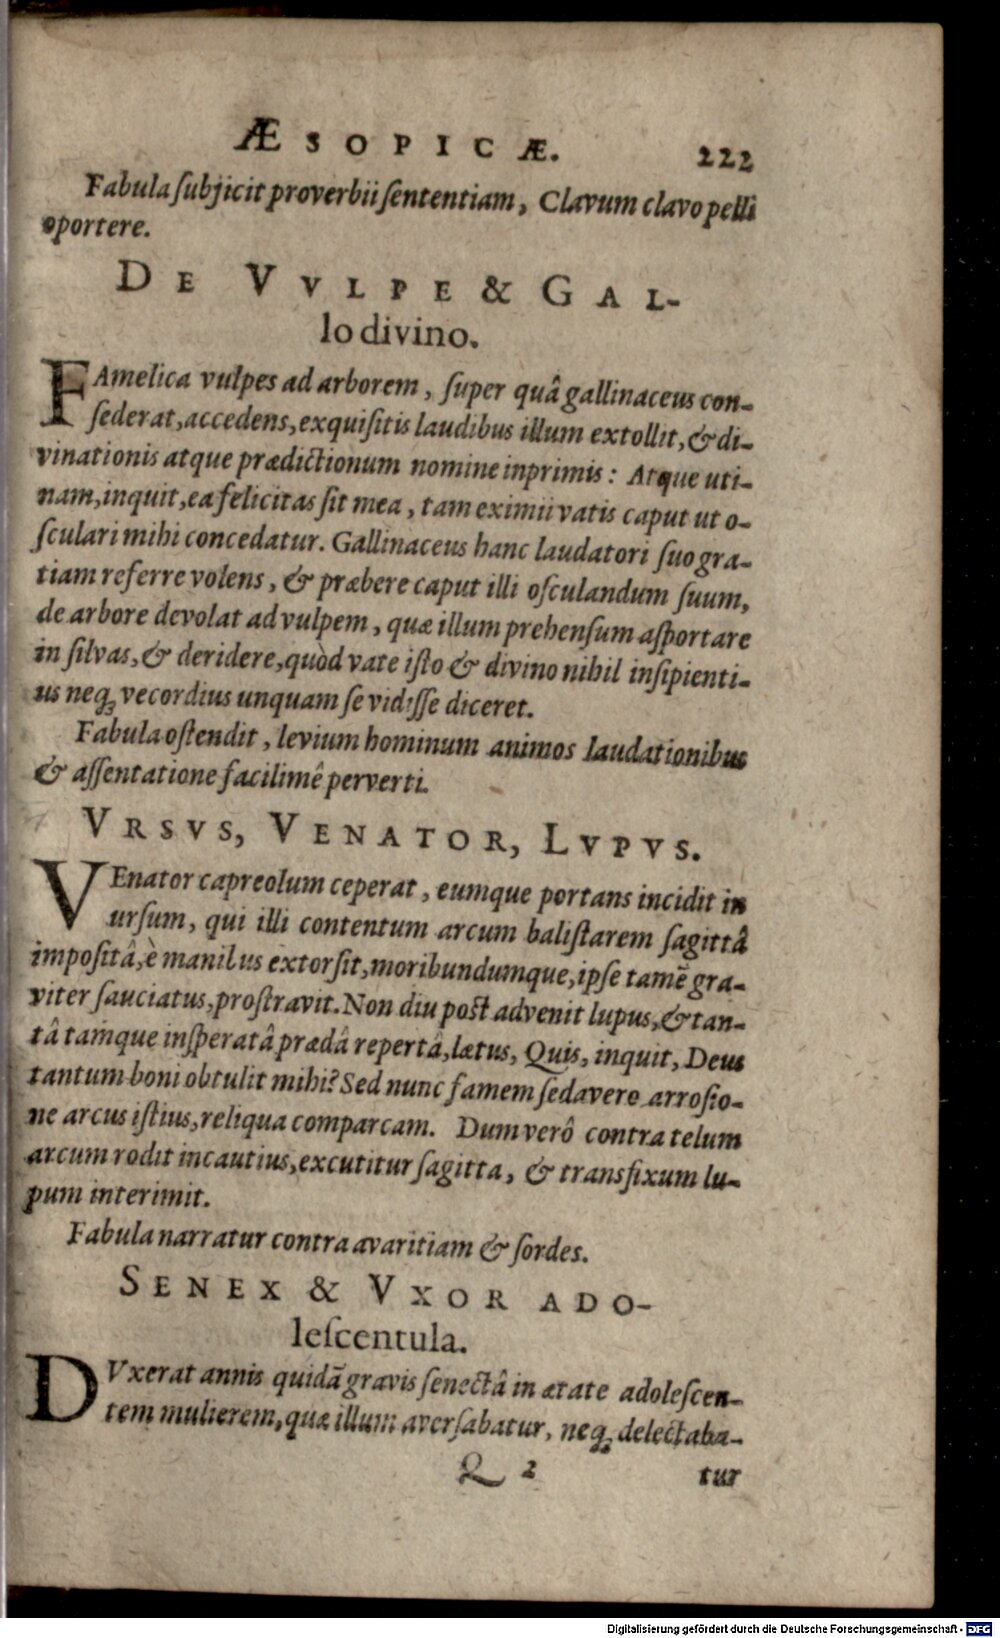 ÆSOPICÆ. 222
Fabula ſubjicit proverbii ſententiam, Clavum clavo pelli
oportere.
DE VVLPE & GAL-
lo divino.
FAmelica vulpes ad arborem, ſuper quâ gallinaceus con-
ſederat, accedens, exquiſitis laudibus illum extollit, & di-
vinationis atque prædictionum nomine inprimis: Atque uti-
nam, inquit, ea felicitas ſit mea, tam eximii vatis caput ut o-
ſculari mihi concedatur. Gallinaceus hanc laudatori ſuo gra-
tiam referre volens, & præbere caput illi oſculandum ſuum,
de arbore devolat ad vulpem, quæ illum prehenſum aſportare
in ſilvas, & deridere, quòd vate iſto & divino nihil inſipienti-
us neq; vecordius unquam ſe vidiſſe diceret.
Fabula oſtendit, levium hominum animos laudationibus
& aſſentatione facilimê perverti.
VRSVS, VENATOR, LVPVS.
VEnator capreolum ceperat, eumque portans incidit in
urſum, qui illi contentum arcum baliſtarem ſagittâ
impoſitâ, è manibus extorſit, moribundumque, ipſe tamē gra-
viter ſauciatus, proſtravit. Non diu poſt advenit lupus, & tan-
tâ tamque inſperatâ prædâ repertâ, lætus, Quis, inquit, Deus
tantum boni obtulit mihi? Sed nunc famem ſedavero arroſio-
ne arcus iſtius, reliqua comparcam. Dum verô contra telum
arcum rodit incautius, excutitur ſagitta, & transfixum lu-
pum interimit.
Fabula narratur contra avaritiam & ſordes.
SENEX & VXOR ADO-
leſcentula.
DVxerat annis quidā gravis ſenectâ in ætate adoleſcen-
tem mulierem, quæ illum averſabatur, neq; delectaba-
Q 2 tur
Digitalisierung gefördert durch die Deutsche Forschungsgemeinschaft - DFG